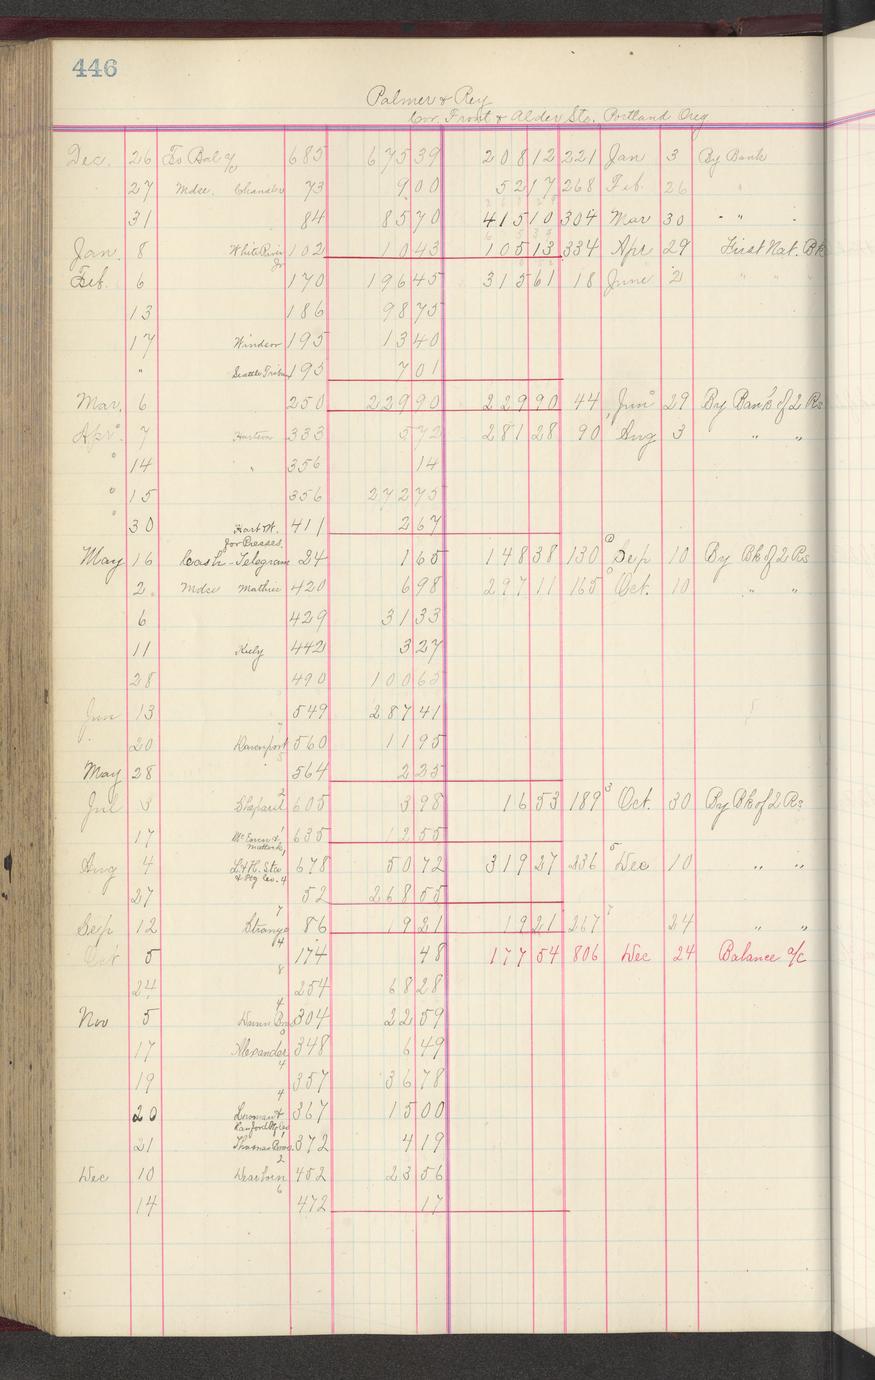 446
Palmer & Rey
Cor. Front & Alder Sts. Portland Oreg
Dec. 26 To Bal a/c 685 675 39 208 12 221 Jan 3 By Bank
27 Mdse. Chandler 73 9 00 52 17 268 Feb. 26 "
31 84 85 70 415 10 304 Mar 30 " " "
Jan. 8 White River Jr 102 10 43 105 13 334 Apr 29 First Nat. Bk
Feb. 6 170 196 45 315 61 18 June 2 " " "
13 186 98 75
17 Windsor 195 13 40
" Seattle Tribune 195 7 01
Mar. 6 250 229 90 229 90 44 Jun 29 By Bank of 2 Rs
Apr. 7 333 5 72 281 28 90 Aug 3 " "
" 14 " 356 14
" 15 356 272 75
" 30 Hart M. 411 2 67
for Presses.
May 16 Cash-Telegram 24 1 65 148 38 130 Sep 10 By Bk of 2 Rs
2. Mdse Mathies 420 6 98 297 11 165 Oct. 10 " "
6 429 31 33
11 Kiely 442 3 27
28 490 100 65
Jun 13 549 287 41
20 Davenport 560 11 95
May 28 564 2 25
Jul 3 Shepard 605 3 98 16 53 189 Oct. 30 By Bk of 2 Rs
17 635 12 55
Aug 4 678 50 72 319 27 236 Dec 10 " "
27 52 268 55
Sep 12 Strange 86 19 21 19 21 267 24 " "
Oct 5 174 48 177 54 806 Dec 24 Balance a/c
24 254 68 28
Nov 5 304 22 59
17 Alexander 348 6 49
19 357 36 78
20 367 15 00
21 Thomas 372 4 19
Dec 10 Dearborn 452 23 56
14 472 17